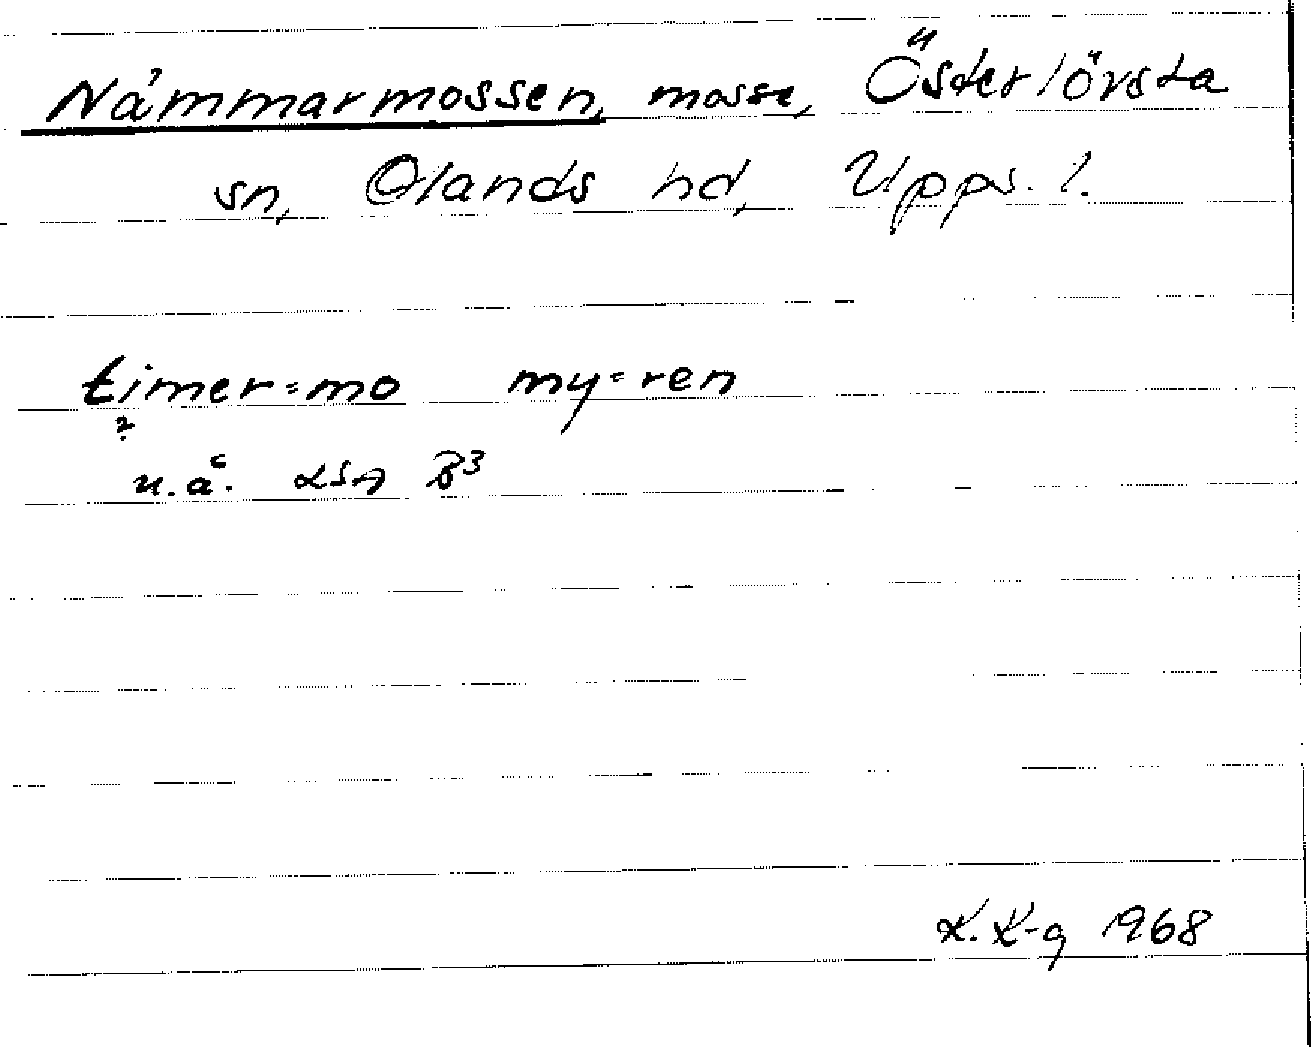 Nåmmarmossen, mosse, Österlövsta
sn, Olands hd, Upps. l.
timer=mo my=ren
?
u.å. LSA B³
K. K-g 1968